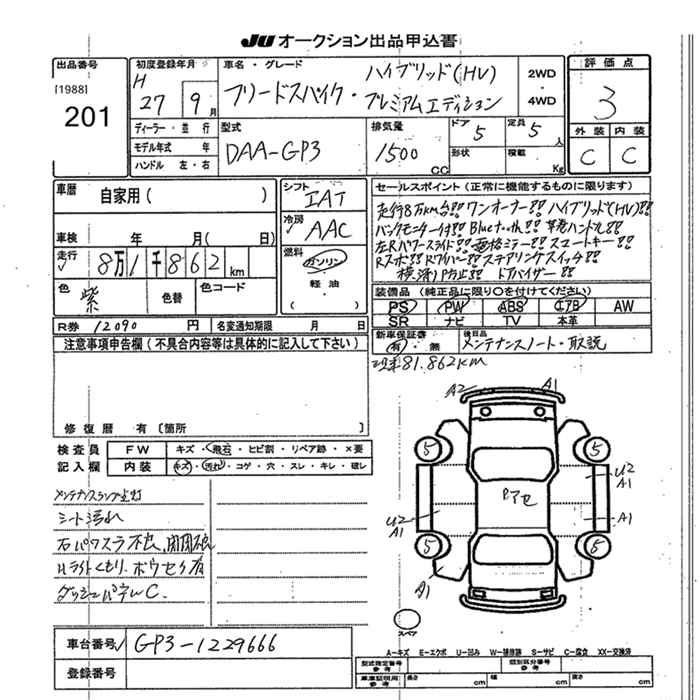 JU オークション出品申込書
出品番号
[1988]
201
初度登録年月
H
27 9月
車名・グレード
ハイブリッド(HV)
フリードスパイク・プレミアムエディション
2WD
・
4WD
評価点
3
外装 内装
C C
ディーラー・並行
モデル年式 年
ハンドル 左・右
型式
DAA-GP3
排気量
1500
CC
ドア 5
定員 5 人
形状
積載 Kg
車歴
自家用( )
車検 年 月( 日)
走行
8万1千862km
色 紫
色替
色コード
R券 12090 円
名変通知期限 月 日
シフト
IAT
冷房
AAC
燃料
ガソリン
・
軽油
( )
セールスポイント(正常に機能するものに限ります)
走行8万km台!! ワンオーナー!! ハイブリッド(HV)!!
バックモニター付!! Bluetooth!! 革巻ハンドル!!
左Rパワースライド!! 電格ミラー!! スマートキー!!
Rスポ!! Rワイパー!! ステアリングスイッチ!!
横滑り防止!! ドアバイザー!!
装備品(純正品に限り○を付けてください)
PS PW ABS エアB AW
SR ナビ TV 本革
新車保証書
有・無
後日品
メンテナンスノート・取説
現車81.862km
注意事項申告欄(不具合内容等は具体的に記入して下さい)
修復歴 有〔箇所
検査員
記入欄
FW キズ・飛石・ヒビ割・リペア跡・×要
内装 キズ・汚れ・コゲ・穴・スレ・キレ・破レ
メンテナンスランプ点灯
シート汚れ
右パワスラ不良、開閉不良
Hライトくもり、ボウセリ有
ダッシュパネルC.
A2 A1
5 5
U2
A1
Rアセ
U2
A1
A1
5 5
A1
スペア
車台番号 GP3-1229666
登録番号
A-キズ E-エクボ U-凹み W-補修跡 S-サビ C-腐食 XX-交換済
型式指定番号
参考
類別区分番号
参考
車庫証明用
参考
長さ cm 幅 cm 高さ cm